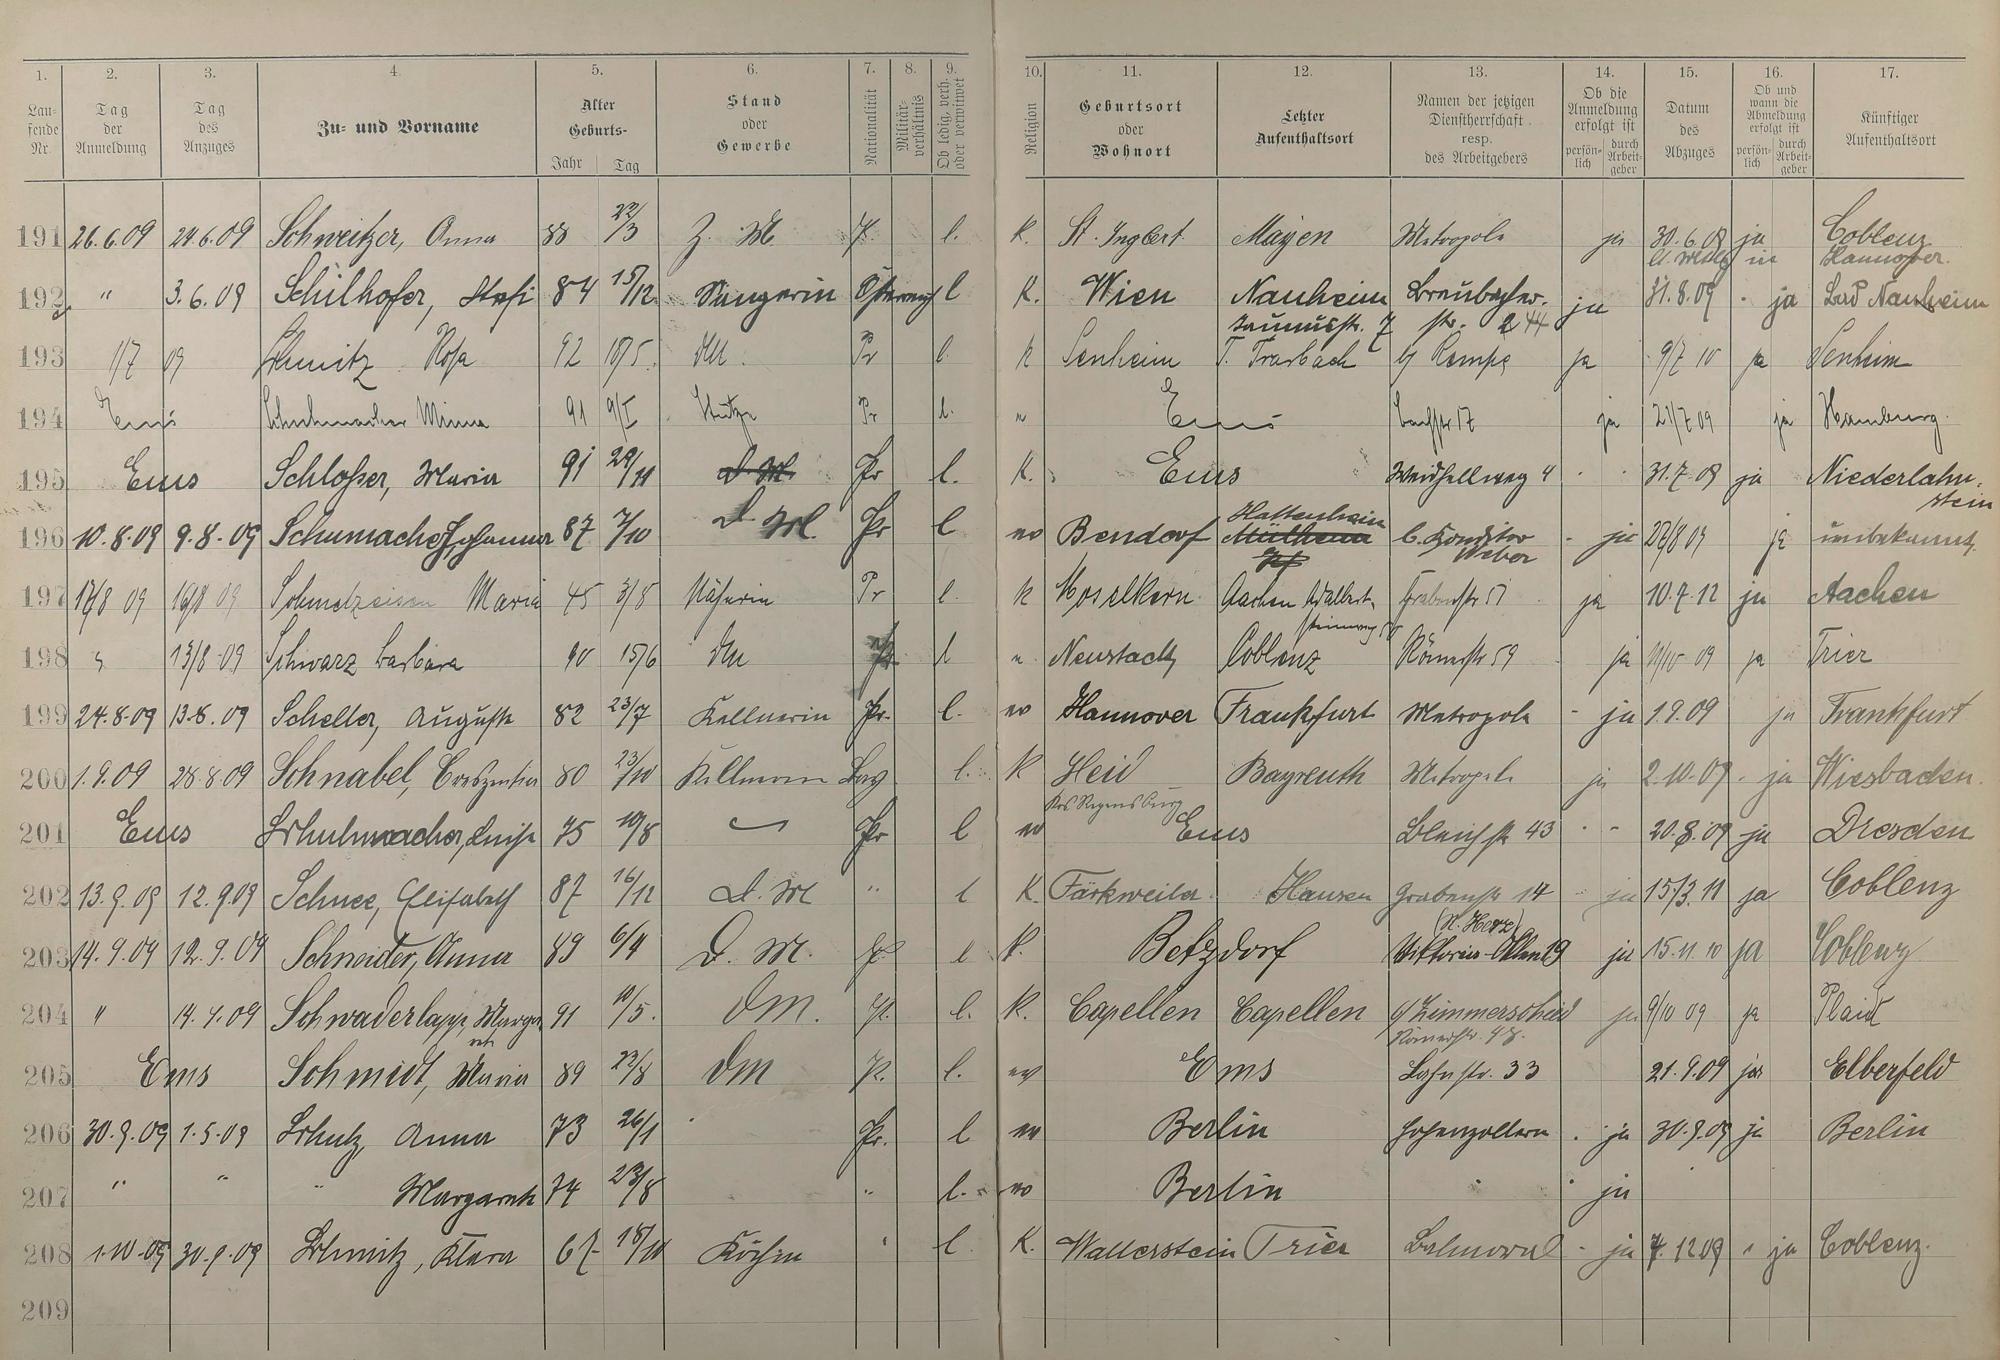 1. 2. 3. 4. 5. 6. 7. 8. 9. 10. 11. 12. 13. 14. 15. 16. 17.
Laufende Nr. Tag der Anmeldung Tag des Anzuges Zu- und Vorname Alter Geburts- Jahr Tag Stand oder Gewerbe Nationalität Militärverhältnis Ob ledig, verh. oder verwitwet Religion Geburtsort oder Wohnort Letzter Aufenthaltsort Namen der jetzigen Dienstherrschaft resp. des Arbeitgebers Ob die Anmeldung erfolgt ist persönlich durch Arbeitgeber Datum des Abzuges Ob und wann die Abmeldung erfolgt ist persönlich durch Arbeitgeber Künftiger Aufenthaltsort
191 26.6.09 24.6.09 Schweitzer, Anna 88 22/3 Z. M l. K. St. Ingbert Mayen Metropole ja 30.6.09 ja Coblenz
Hannover.
192 " 3.6.09 Schilhofer, Stefi 84 15/12 Sängerin Österreich l K. Wien Nauheim ja 31.8.09 ja Bad Nauheim
Taunusstr. 7 str. 2
193 1/7 09 Schmitz Rosa 92 DM Pr l. K Senheim T. Trarbach b/ Kempe ja 9/7 10 ja Senheim
194 Ems Schuhmacher Minna 91 9/I Stütze Pr l. " Ems 17 ja 21/7 09 ja Hamburg.
195 Ems Schlosser, Maria 91 29/11 D. M. Pr l. K. Ems 4 31.7.09 ja Niederlahn-
stein
Hattenheim
196 10.8.09 9.8.09 Schumacher Johanna 87 7/10 D. M. Pr l ev Bendorf b. Konditor ja 27/8 09 ja unbekannt.
Weber
197 17/8 09 16/8 09 Schmelzeisen Maria 45 3/8 Näherin Pr l. K Moselkern Aachen Adalbert- Grabenstr 51 ja 10.7.12 ja Aachen
steinweg
198 " 13/8 09 Schwarz Barbara 90 15/6 DM Pr l " Neustadt Coblenz Römerstr 59 ja 11/10 09 ja Trier
199 24.8.09 13.8.09 Scheller, Auguste 82 23/7 Kellnerin Pr. l. ev Hannover Frankfurt Metropole ja 1.9.09 ja Frankfurt
200 1.9.09 28.8.09 Schnabel, Creszentia 80 23/10 Kellnerin Bay l. K Heid Bayreuth Metropole ja 2.10.09 ja Wiesbaden.
Krs Regensburg
201 Ems Schuhmacher, Luise 75 10/8 Pr l ev Ems Bleichstr 43 20.8.09 ja Dresden
202 13.9.09 12.9.09 Schnee, Elisabeth 87 16/12 D. M " l K. Hausen Grabenstr 14 ja 15/3.11 ja Coblenz
(N. Herz)
203 14.9.09 12.9.09 Schneider, Anna 89 6/4 D. M. l K. Betzdorf Viktoria-Allee 19 ja 15.11.10 ja Coblenz
204 " 14.9.09 Schwaderlapp, Marga- 91 10/5. DM. l. K. Capellen Capellen b/ Zimmerscheid ja 9/10 09 ja Plaidt
reta Römerstr. 48.
205 Ems Schmidt, Maria 89 22/8 DM l. ev Ems Lahnstr. 33 21.9.09 ja Elberfeld
206 30.9.09 1.5.09 Schulz, Anna 73 26/1 Pr. l ev Berlin Hohenzollern ja 30.9.09 ja Berlin
207 " " " Margarete 74 23/8 " l. ev Berlin " ja
208 1.10.09 30.9.09 Schmitz, Klara 67 18/10 Köchin " l. K. Wallerstein Trier Balmoral ja 7.12.09 ja Coblenz.
209